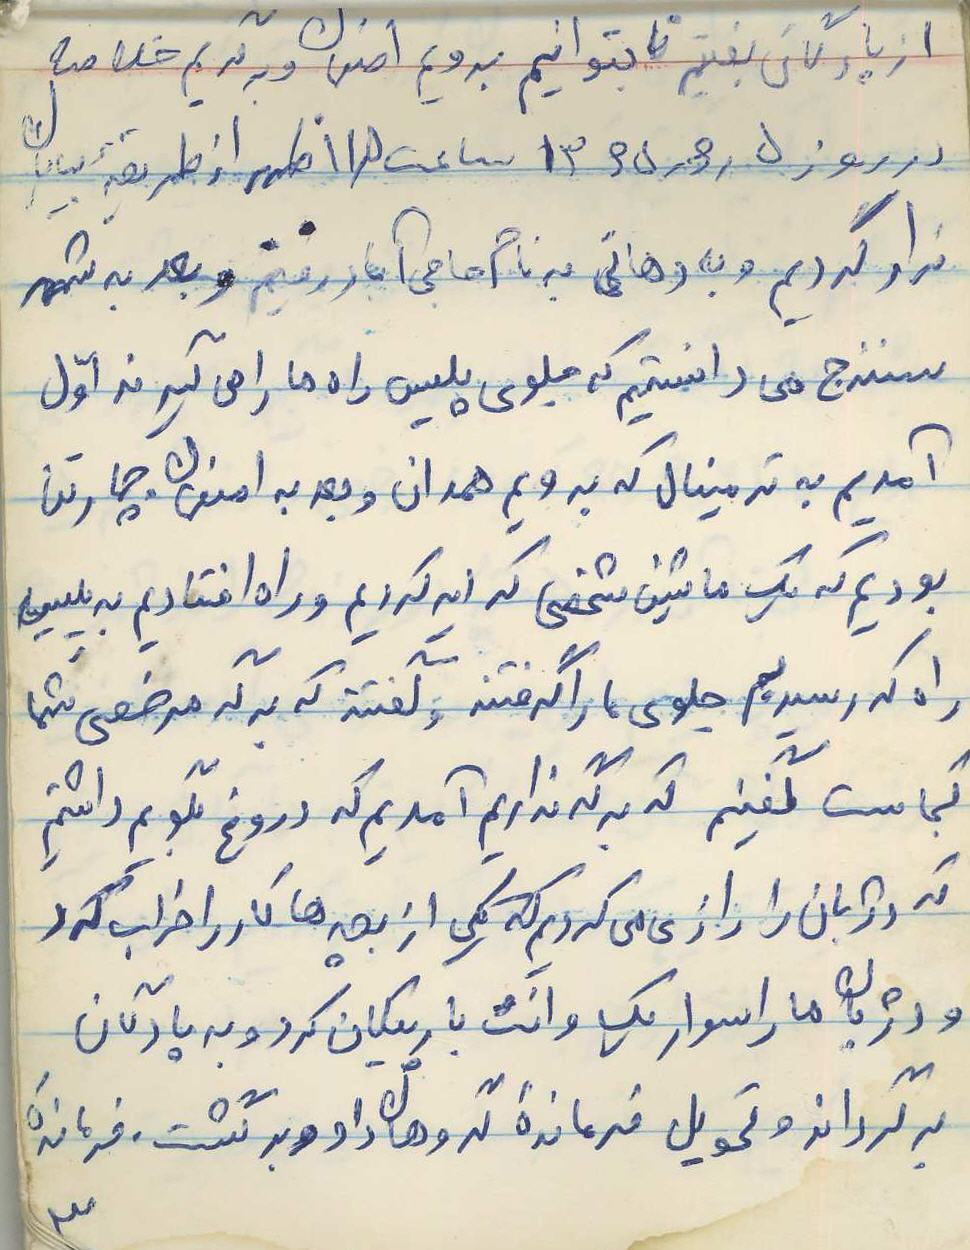 از پادگان بفتیم تا بتوانیم به رویم اصفهان و به گریم خلاصه
در روز ۵ ظهر از طریق بیابان
فرار کردیم و به دهاتی به نام حاجی آباد رفتیم و بعد به شهر
سنندج می دانستیم که جلوی پلیس راه ما را می گیرند اول
آمدیم به ترمینال که به رویم همدان و بعد به اصفهان. چهار تن
بودیم که یک ماشین شخصی کرایه کردیم و راه افتادیم به پلیس
راه که رسیدیم جلوی ما را گرفتند و گفتند که برگه مرخصی شما
کجاست گفتیم که برگه نداریم آمدیم که دروغ بگویم داشتیم
که دژبان را رازی می کردیم که یکی از بچه ها کار را خراب کرد
و دژبان ما را سوار یک وانت بار پیکان کرد و به پادگان
برگرداند و تحویل فرماندهٔ گروهان داد و برگشت. فرماندهٔ
۳